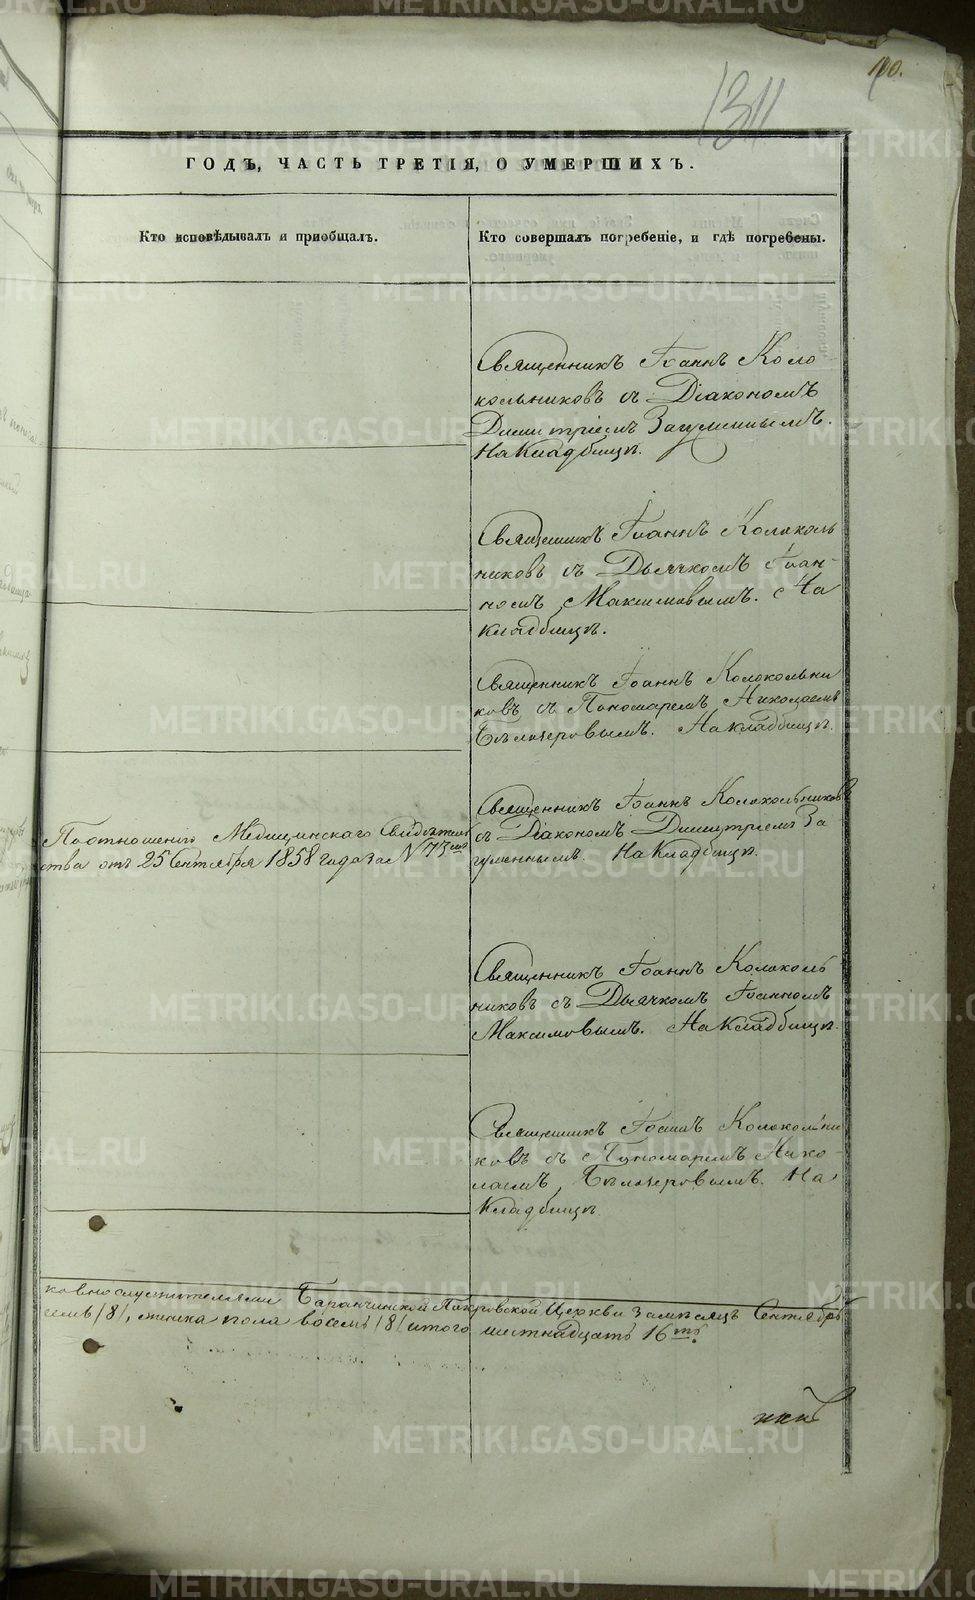 190.
1311
ГОДЪ, ЧАСТЬ ТРЕТІЯ, О УМЕРШИХЪ.
Кто исповѣдывалъ и пріобщалъ.
Кто совершалъ погребеніе, и гдѣ погребены.
Священникъ Іоаннъ Коло
кольниковъ съ Діакономъ
Димитріемъ Загуменнымъ.
На Кладбищѣ.
Священникъ Іоаннъ Колоколь
никовъ съ Дьячкомъ Іоан-
номъ Максимовымъ. На
кладбищѣ.
Священникъ Іоаннъ Колокольни
ковъ съ Пономаремъ Николаемъ
Бѣлозеровымъ. На кладбищѣ.
По отношенію Медицинскаго Свидѣтель
ства отъ 25 Сентября 1858 года за N 73мъ
Священникъ Іоаннъ Колокольниковъ
съ Діакономъ Димитріемъ За
гуменнымъ. На Кладбищѣ.
Священникъ Іоаннъ Колоколь
никовъ съ Дьячкомъ Іоанномъ
Максимовымъ. На Кладбищѣ.
Священникъ Іоаннъ Колокольни
ковъ съ Пономаремъ Нико-
лаемъ Бѣлозеровымъ. На
Кладбищѣ.
ковнослужителями Баранчинской Покровской Церкви За мѣсяцъ Сентябрь
семь /8/, женска пола восемь /8/ итого шестнадцать 16ть.
METRIKI.GASO-URAL.RU